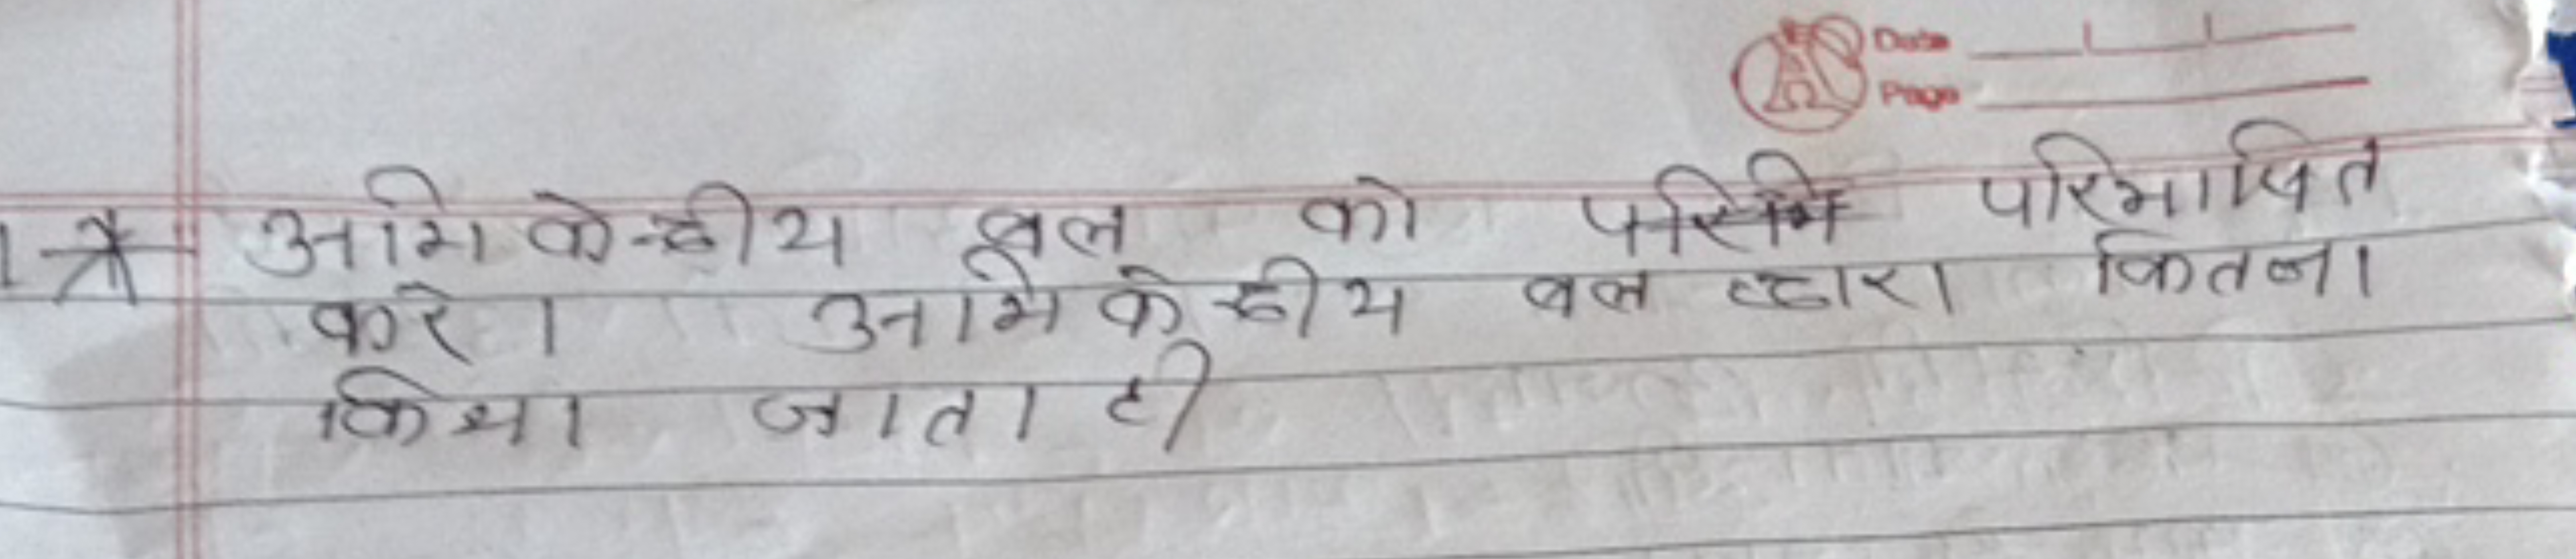 Date
Page
अभिकेन्द्रीय बल को परिभाषित
करे। अभिकेन्द्रीय बल द्वारा कितना
किया जाता है